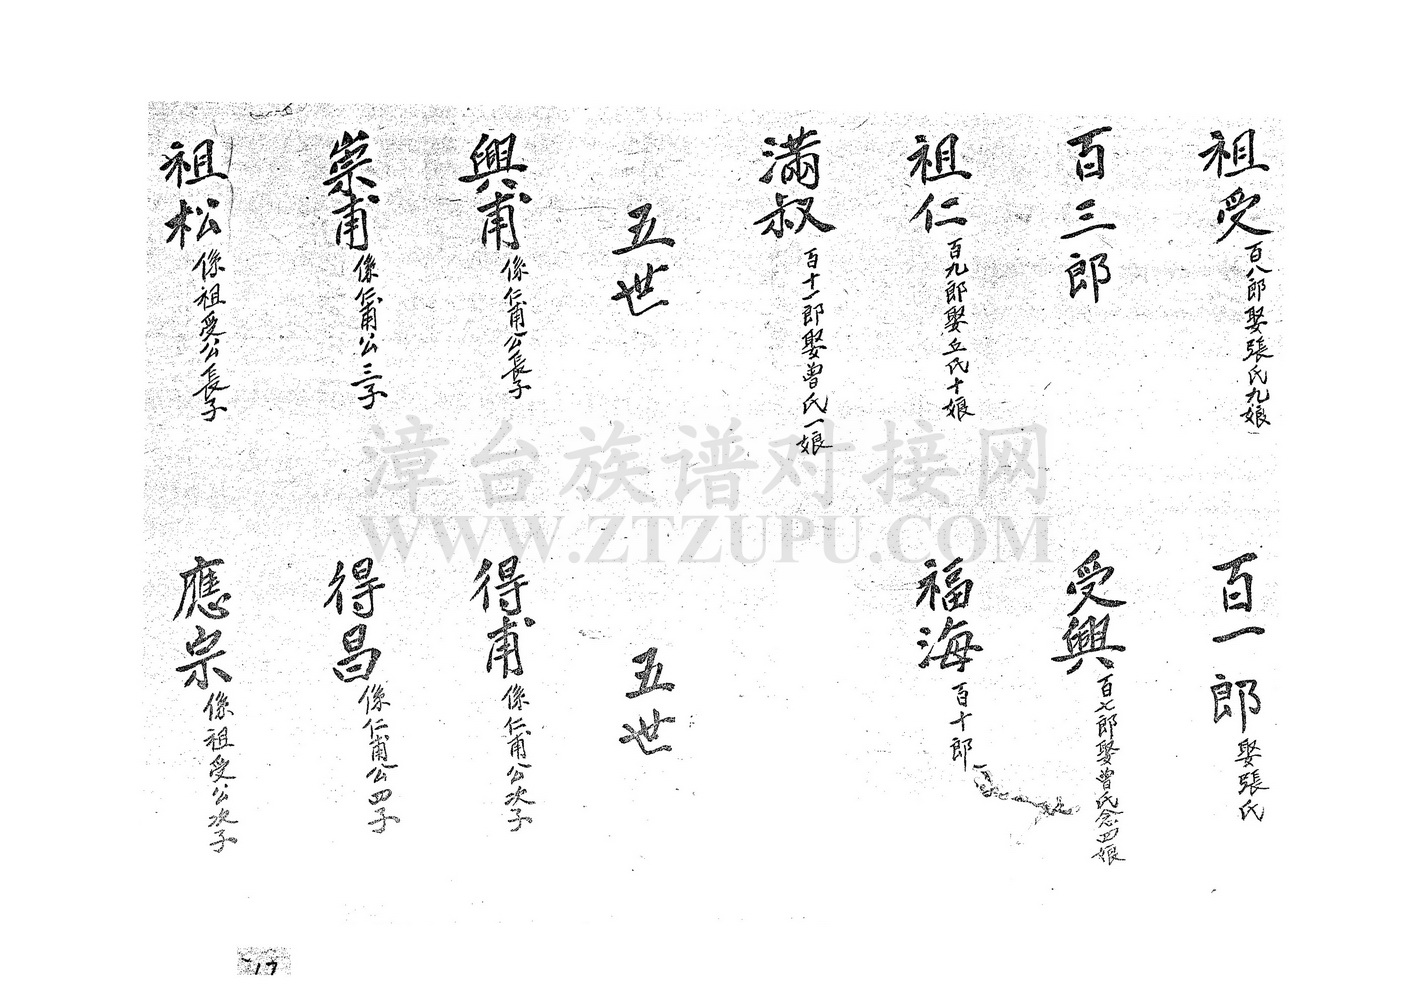 祖受 百八郎娶張氏九娘
百一郎 娶張氏
百三郎
受興 百七郎娶曾氏念四娘
祖仁 百九郎娶丘氏十娘
福海 百十郎
滿叔 百十一郎娶曾氏一娘
五世
五世
興甫 係仁甫公長子
得甫 係仁甫公次子
崇甫 係仁甫公三子
得昌 係仁甫公四子
祖松 係祖受公長子
應宗 係祖受公次子
漳台族谱对接网
WWW.ZTZUPU.COM
17